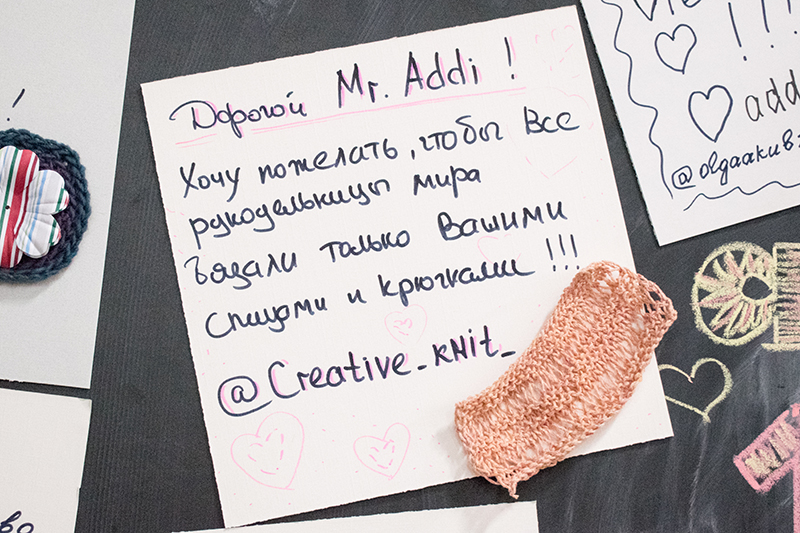 Дорогой Mr. Addi !
Хочу пожелать, чтобы все
рукодельницы мира
вязали только Вашими
спицами и крючками !!!
@Creative_кNit_
!
!!!
add